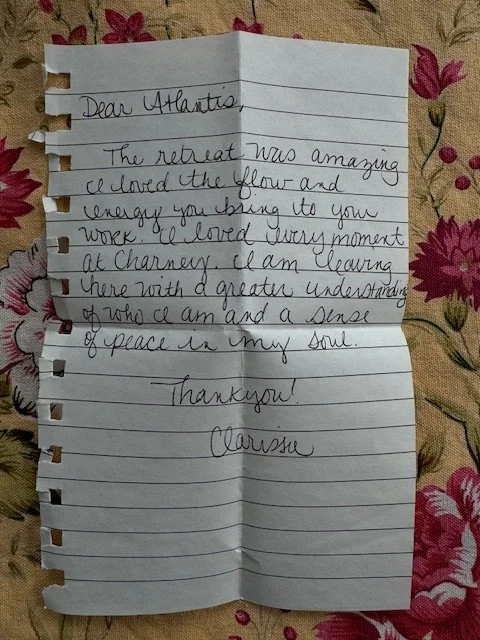 Dear Atlantis,
The retreat was amazing
I loved the flow and
energy you bring to your
work. I loved every moment
at Charney. I am leaving
here with a greater understanding
of who I am and a sense
of peace in my soul.
Thankyou!
Clarissa